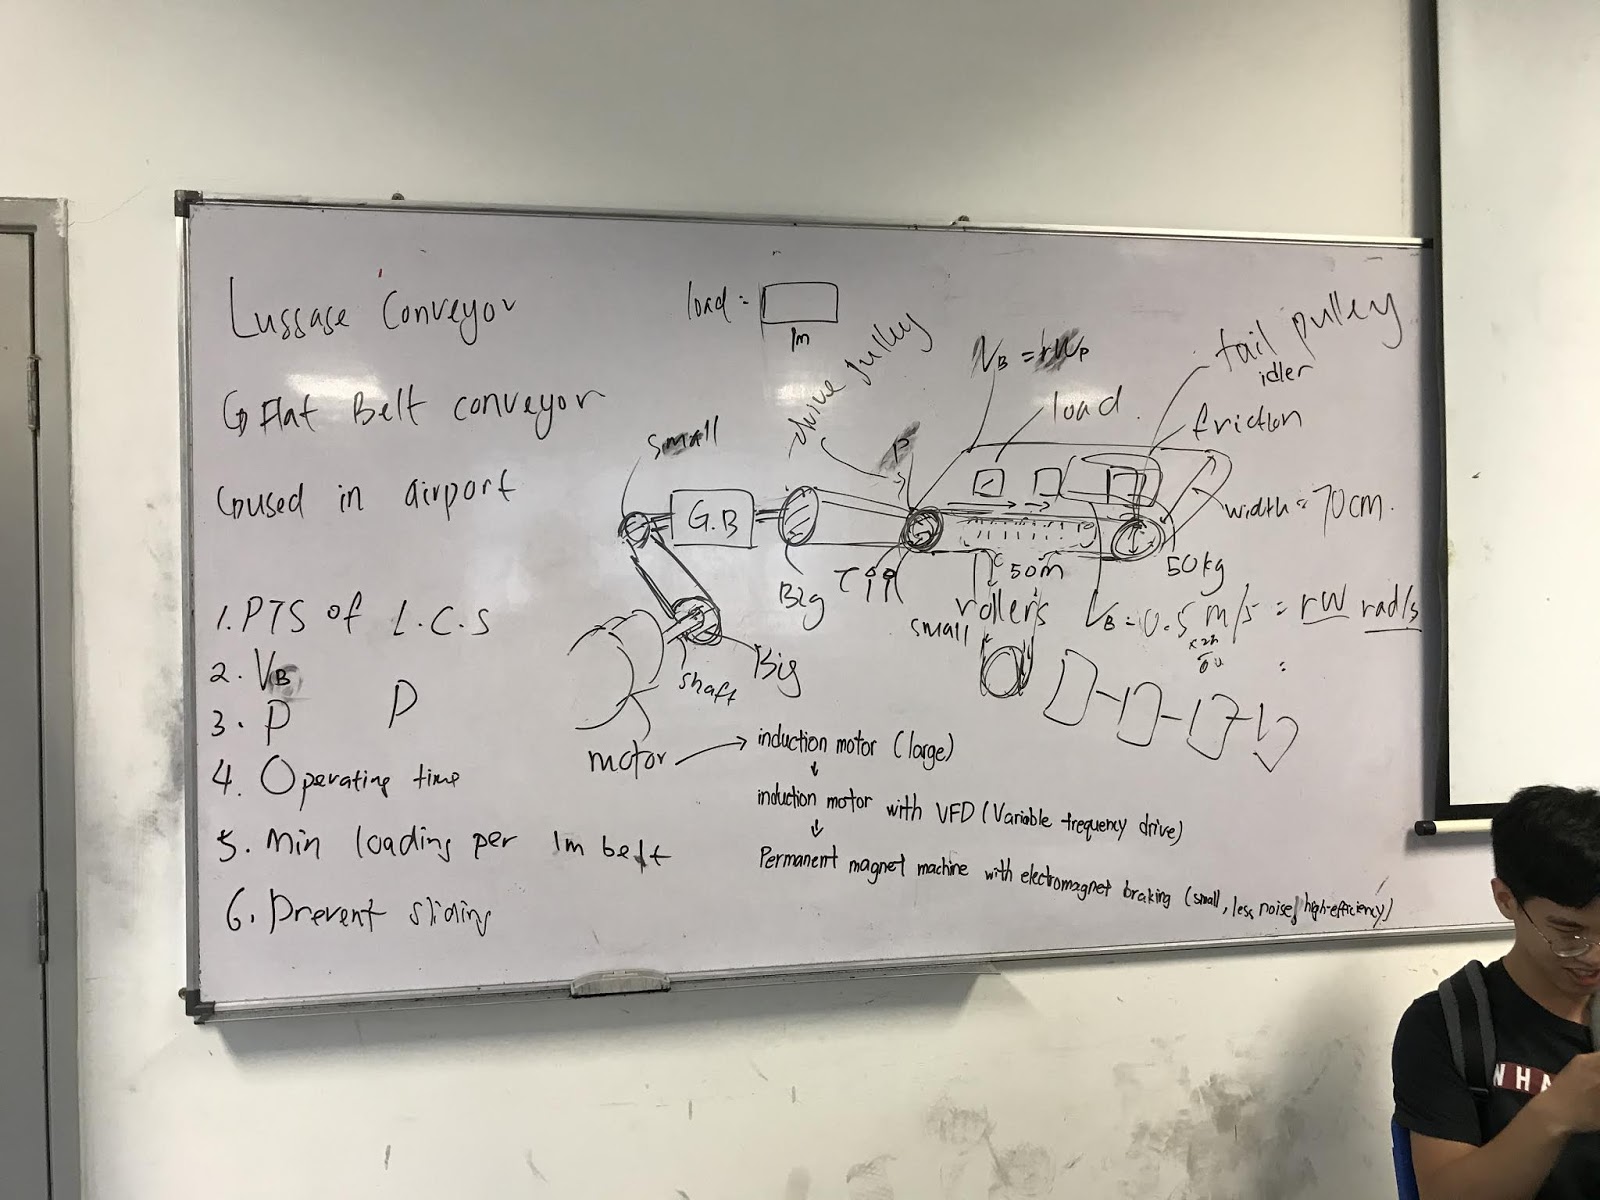 Lussase Conveyor
Flat Belt conveyor
used in airport
1. PTS of L.C.S
2. VB
3. P
P
4. Operating time
5. Min loading per 1m belt
6. Prevent sliding
load =
1m
drive pulley
VB = rWP
tail pulley
idler
friction
load
small
G.B
P
width = 70cm.
Big
50m
50kg
rollers
small
VB = 0.5 m/s = rW rad/s
shaft
Big
motor
induction motor (large)
induction motor with VFD (Variable frequency drive)
Permanent magnet machine with electromagnet braking (small, less noise, high-efficiency)
WHA